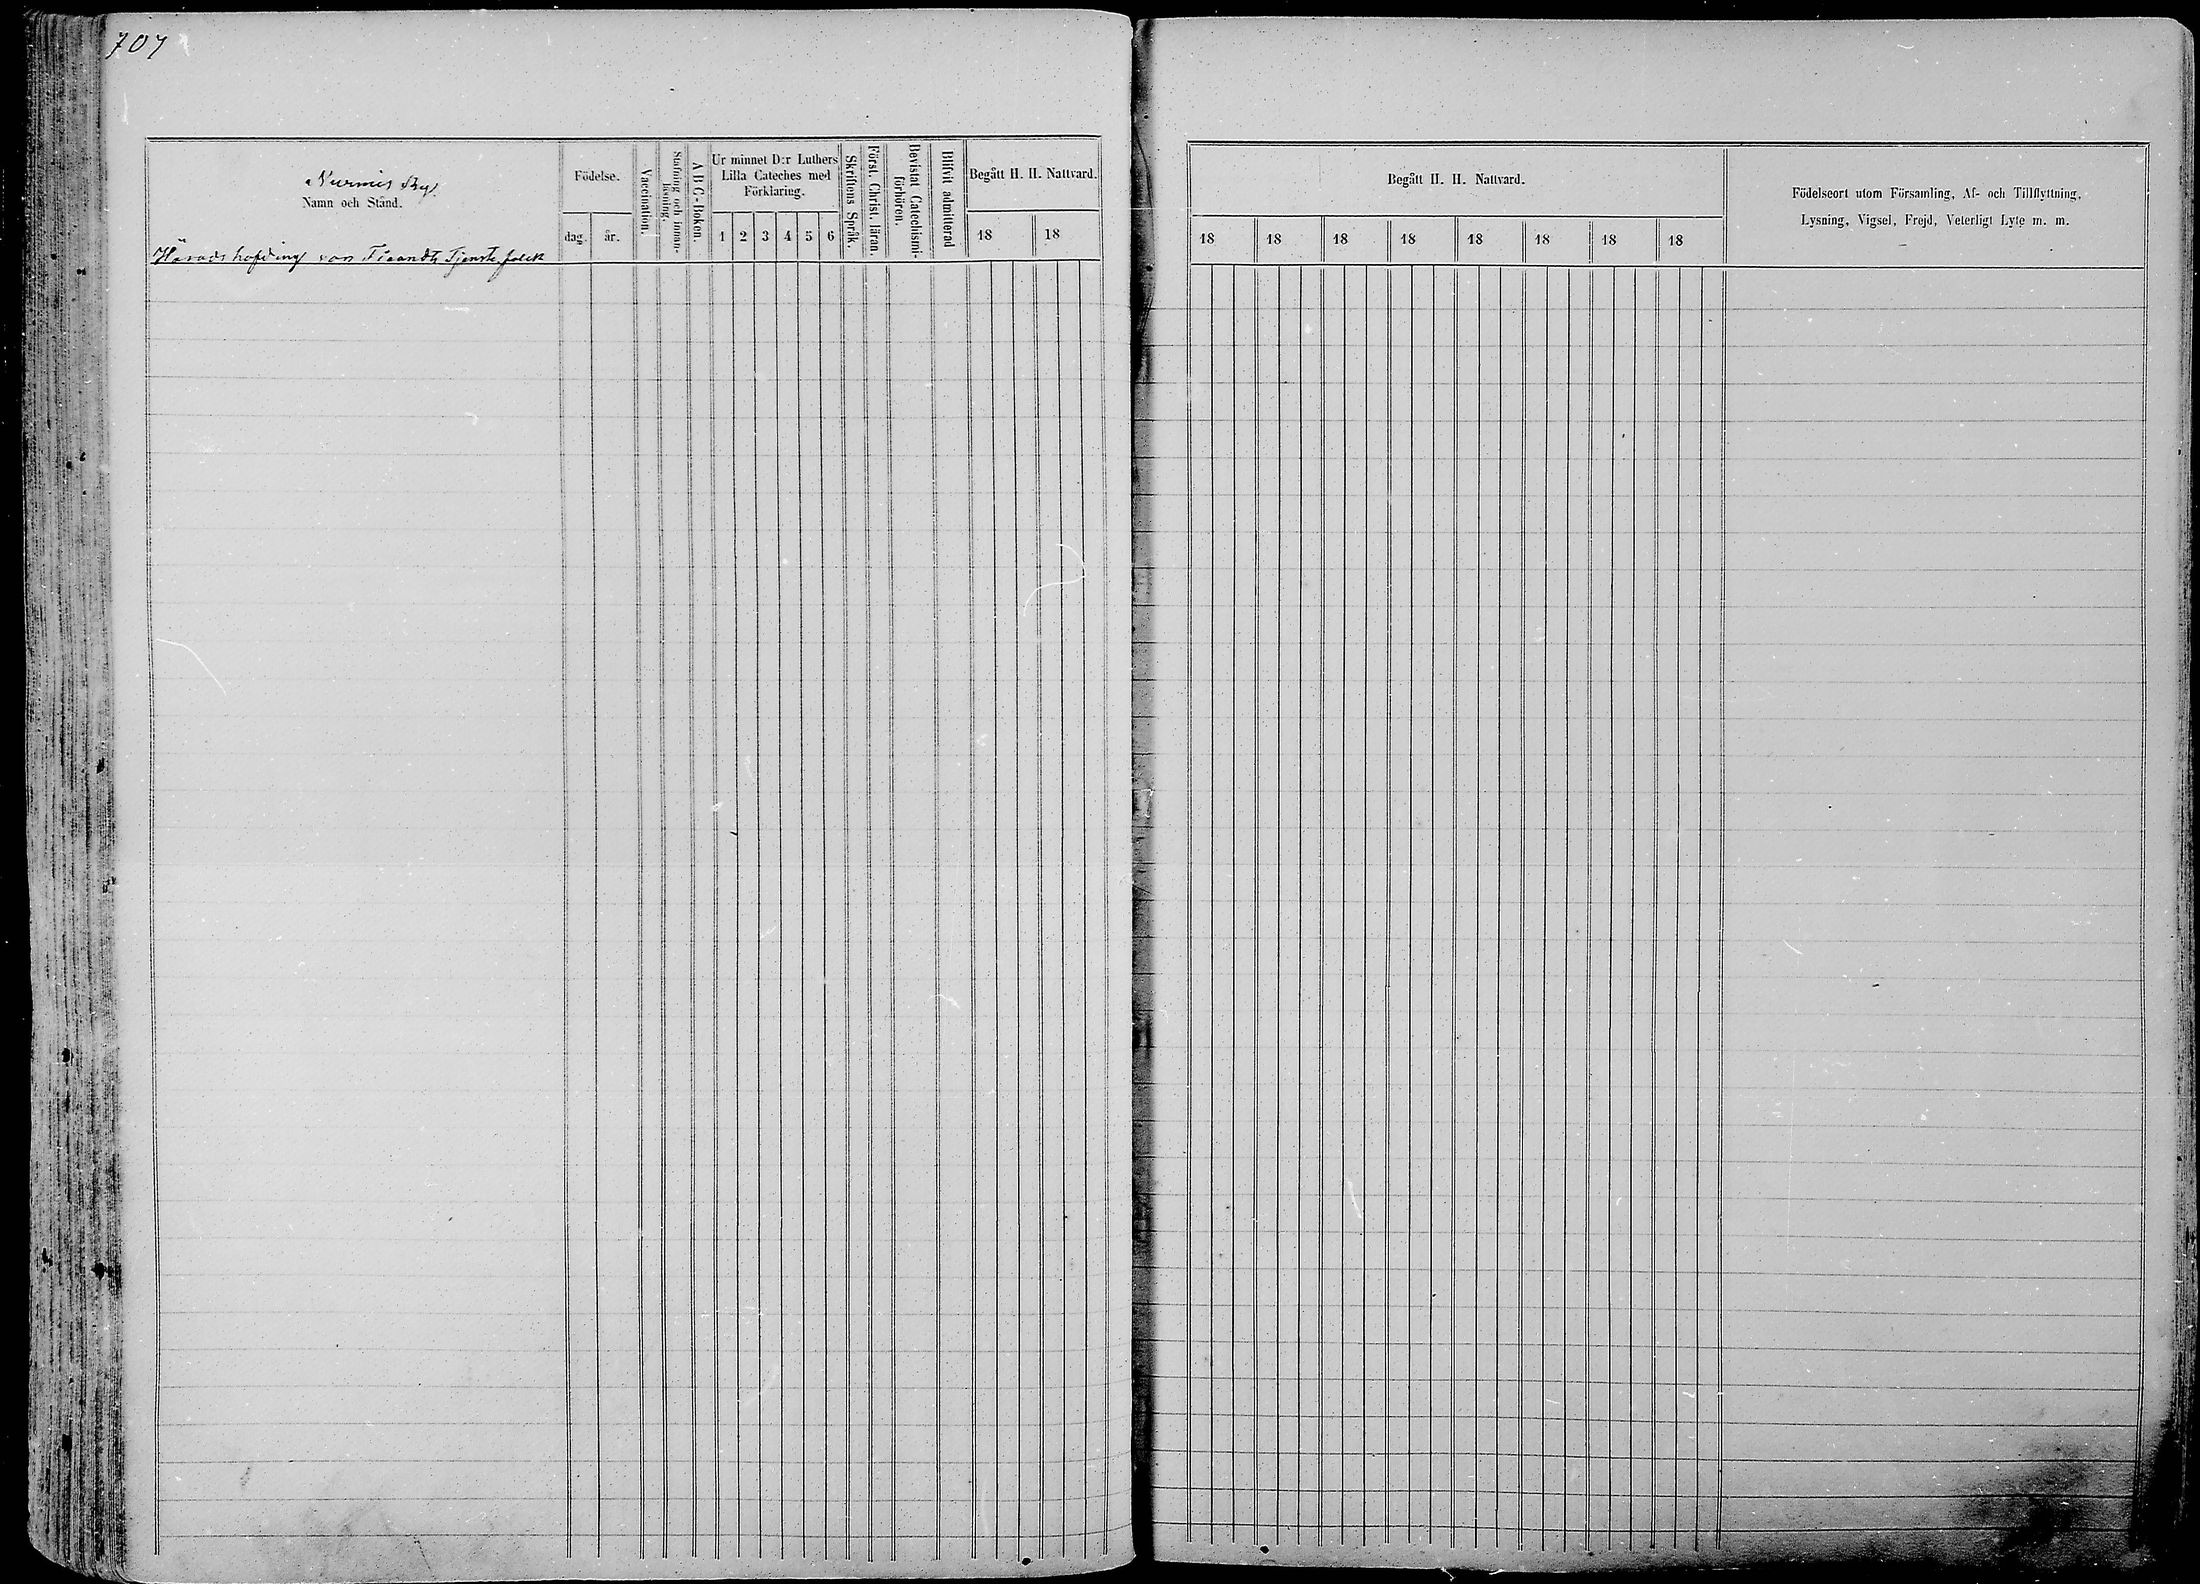 707
Nurmis By.
Namn och Stånd.
Födelse.
dag. år.
Vaccination.
Stafning och innan-
läsning.
A B C-Boken.
Ur minnet D:r Luthers
Lilla Cateches med
Förklaring.
1 2 3 4 5 6
Skriftens Språk.
Först. Christ. läran.
Bevistat Catechismi-
förhören.
Blifvit admitterad
Begått H. H. Nattvard.
18 18
Häradshöfding von Fieandts Tjenstefolck
Begått H. H. Nattvard.
18 18 18 18 18 18 18 18
Födelseort utom Församling, Af- och Tillflyttning,
Lysning, Vigsel, Frejd, Veterligt Lyte m. m.